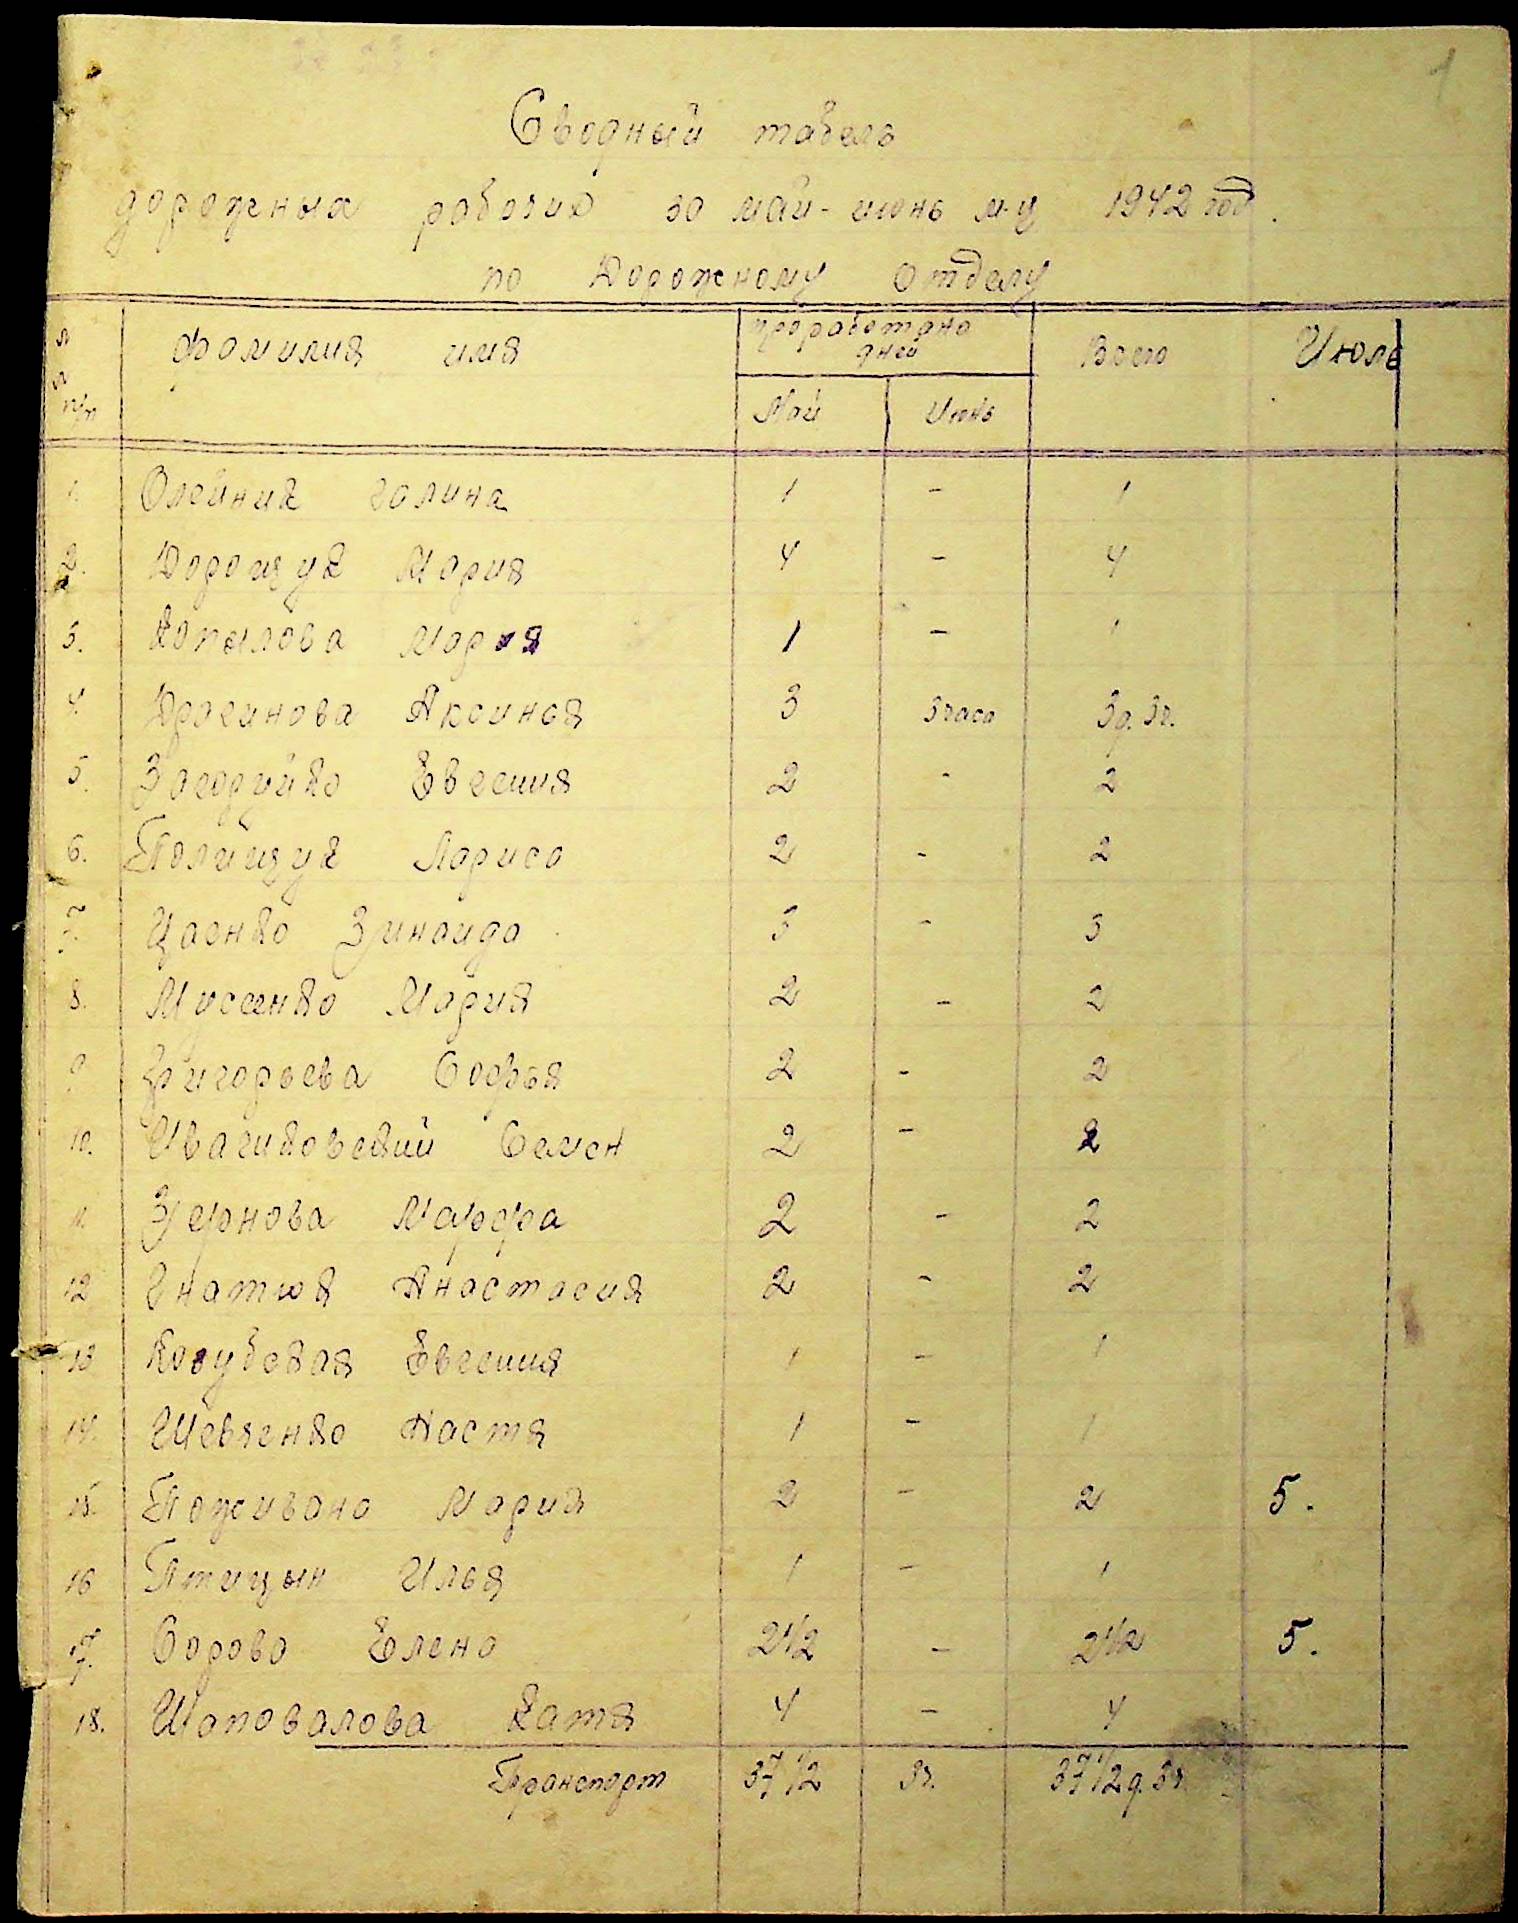 1
Сводный табель
дорожных рабочих за май-июнь м-ц 1942 год.
по Дорожному Отделу
№№ п/п Фамилия имя Проработано дней Всего Июль
Май Июнь
1. Олейник Галина 1 - 1
2. Дорощук Мария 4 - 4
3. Копылова Мария 1 - 1
4. Драгинова Аксинья 3 3 часа 3 д. 3 ч.
5. Загоруйко Евгения 2 - 2
6. Полищук Лариса 2 - 2
7. Цаенко Зинаида 3 - 3
8. Мусиенко Мария 2 - 2
9. Григорьева Софья 2 - 2
10. Ивагиковский Семен 2 - 2
11. Зернова Марфа 2 - 2
12 Гнатюк Анастасия 2 - 2
13 Когубская Евгения 1 - 1
14. Шевченко Настя 1 - 1
15. Поживано Мария 2 - 2 5.
16 Птицын Илья 1 - 1
17. Сорова Елена 2 1/2 - 2 1/2 5.
18. Шаповалова Катя 4 - 4
Транспорт 37 1/2 3ч. 37 1/2 д. 3ч